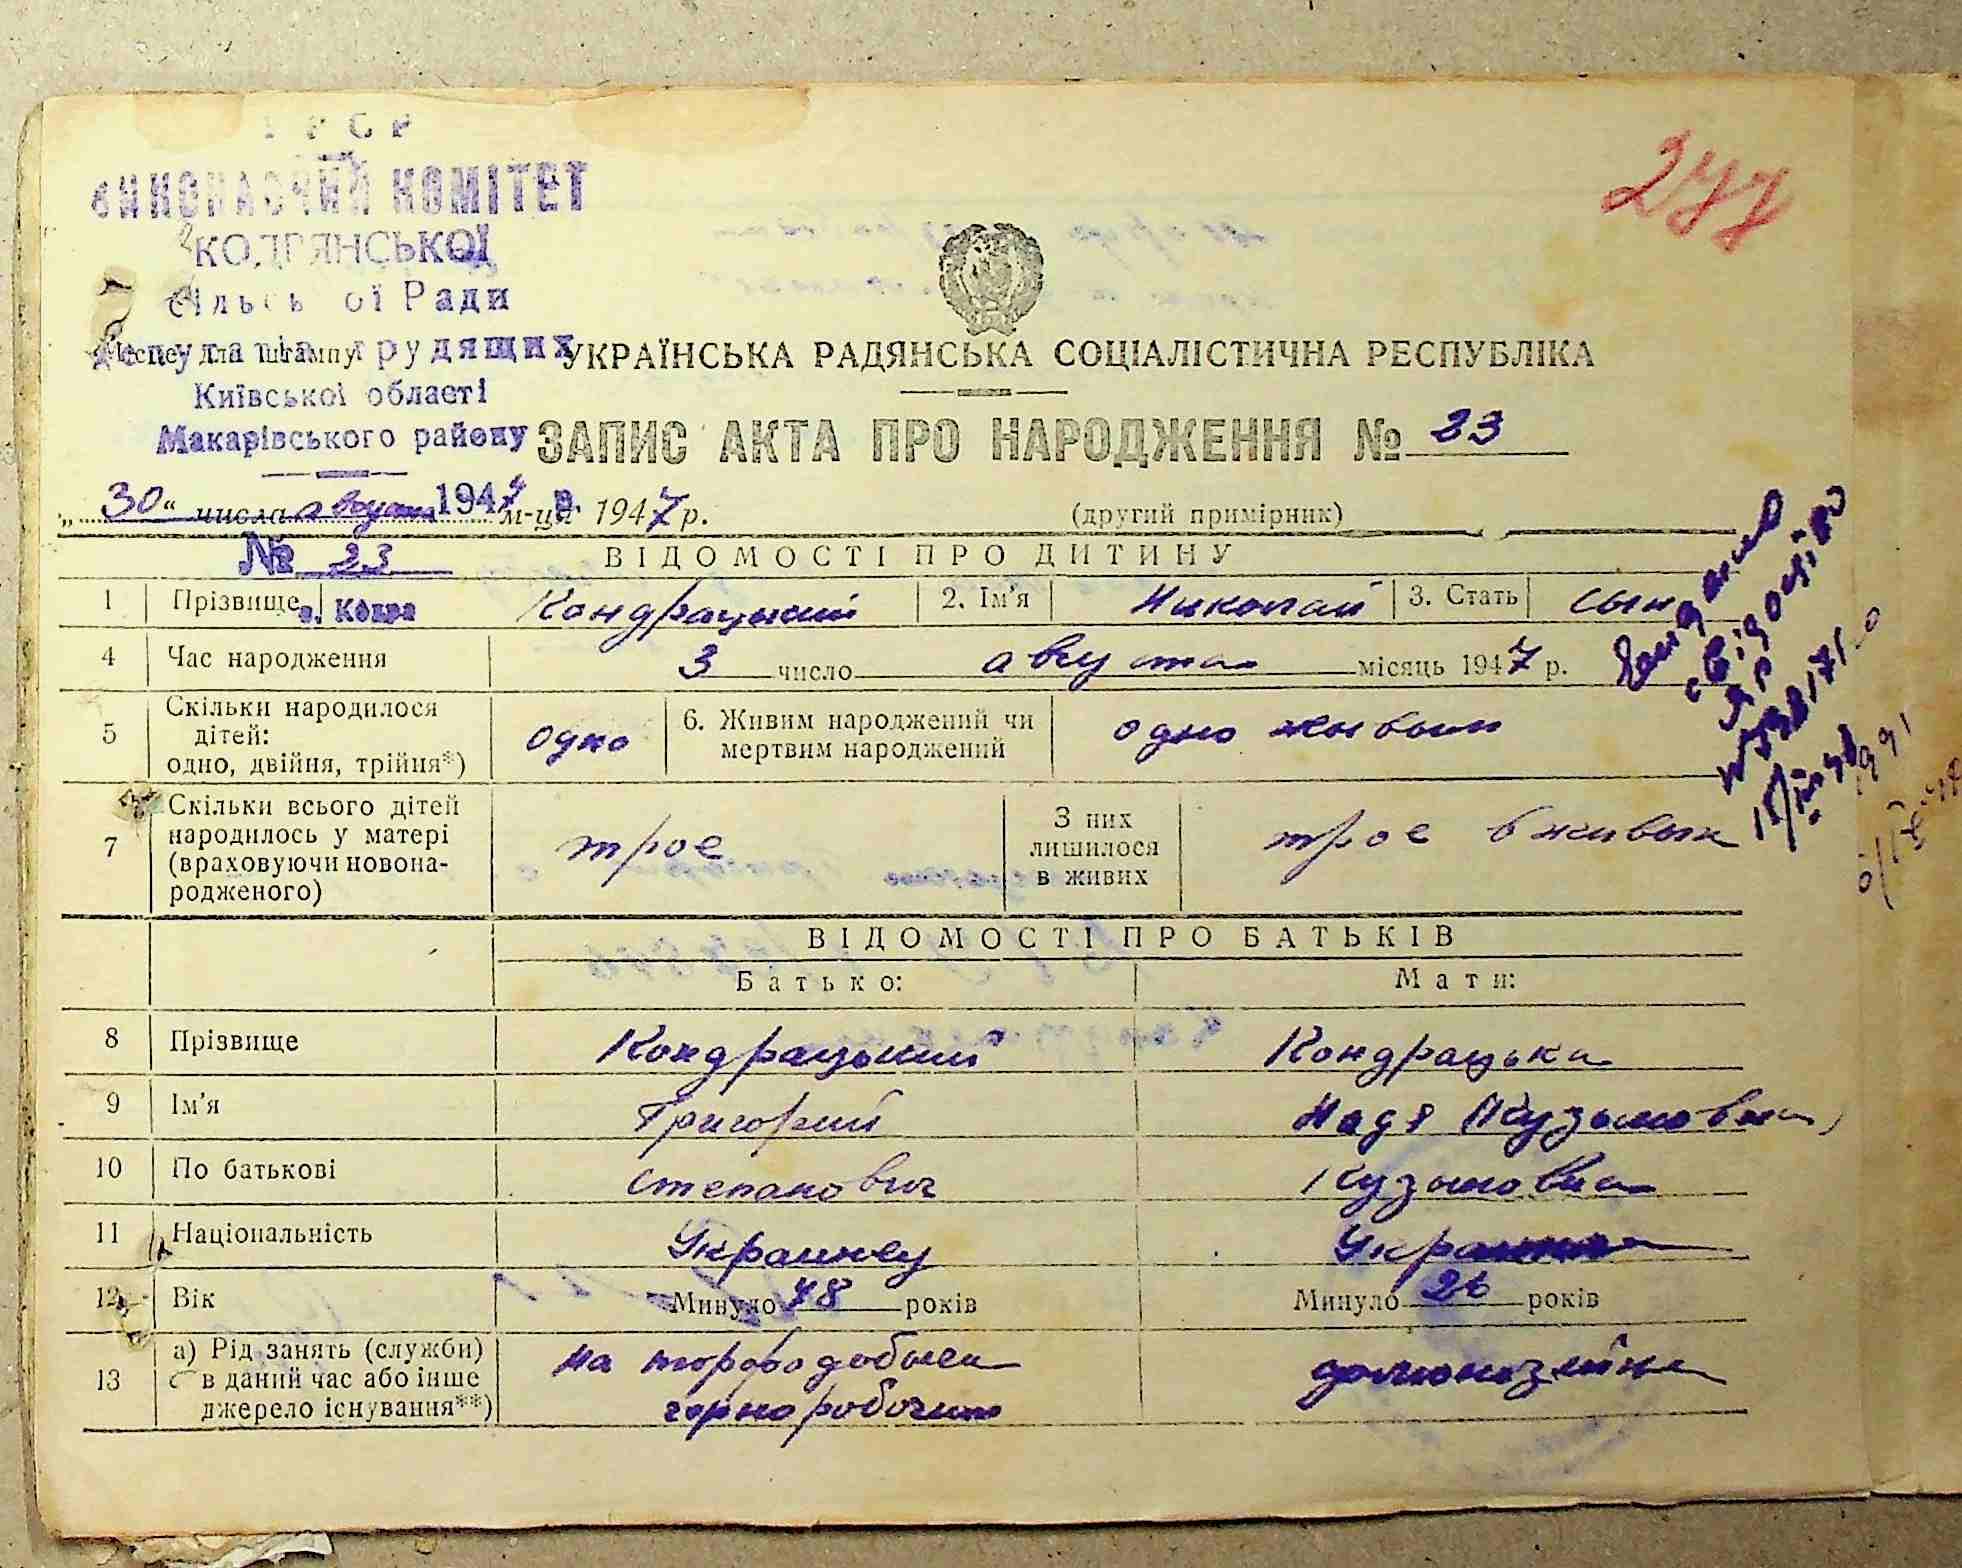 УРСР
ВИКОНАВЧИЙ КОМІТЕТ
КОДРЯНСЬКОЇ
сільської Ради
депутатів трудящих
Місце для штампу
Київської області
Макарівського району
277
УКРАЇНСЬКА РАДЯНСЬКА СОЦІАЛІСТИЧНА РЕСПУБЛІКА
ЗАПИС АКТА ПРО НАРОДЖЕННЯ № 23
„30“ числа августа м-ця 1947 р.
1947 р.
(другий примірник)
№ 23
с. Кодра
ВІДОМОСТІ ПРО ДИТИНУ
1 Прізвище Кондрацький 2. Ім'я Николай 3. Стать сын
4 Час народження 3 число августа місяць 1947 р.
5 Скільки народилося дітей: одно, двійня, трійня*) одно 6. Живим народжений чи мертвим народжений одно живым
7 Скільки всього дітей народилось у матері (враховуючи новонародженого) трое З них лишилося в живих трое в живых
ВІДОМОСТІ ПРО БАТЬКІВ
Батько: Мати:
8 Прізвище Кондрацький Кондрацька
9 Ім'я Григорий Надя Кузьмовна
10 По батькові Степанович Кузьмовна
11 Національність Украинец Украинка
12 Вік Минуло 48 років Минуло 26 років
13 а) Рід занять (служби) в даний час або інше джерело існування**) на торфодобычи черноробочим домохозяйка